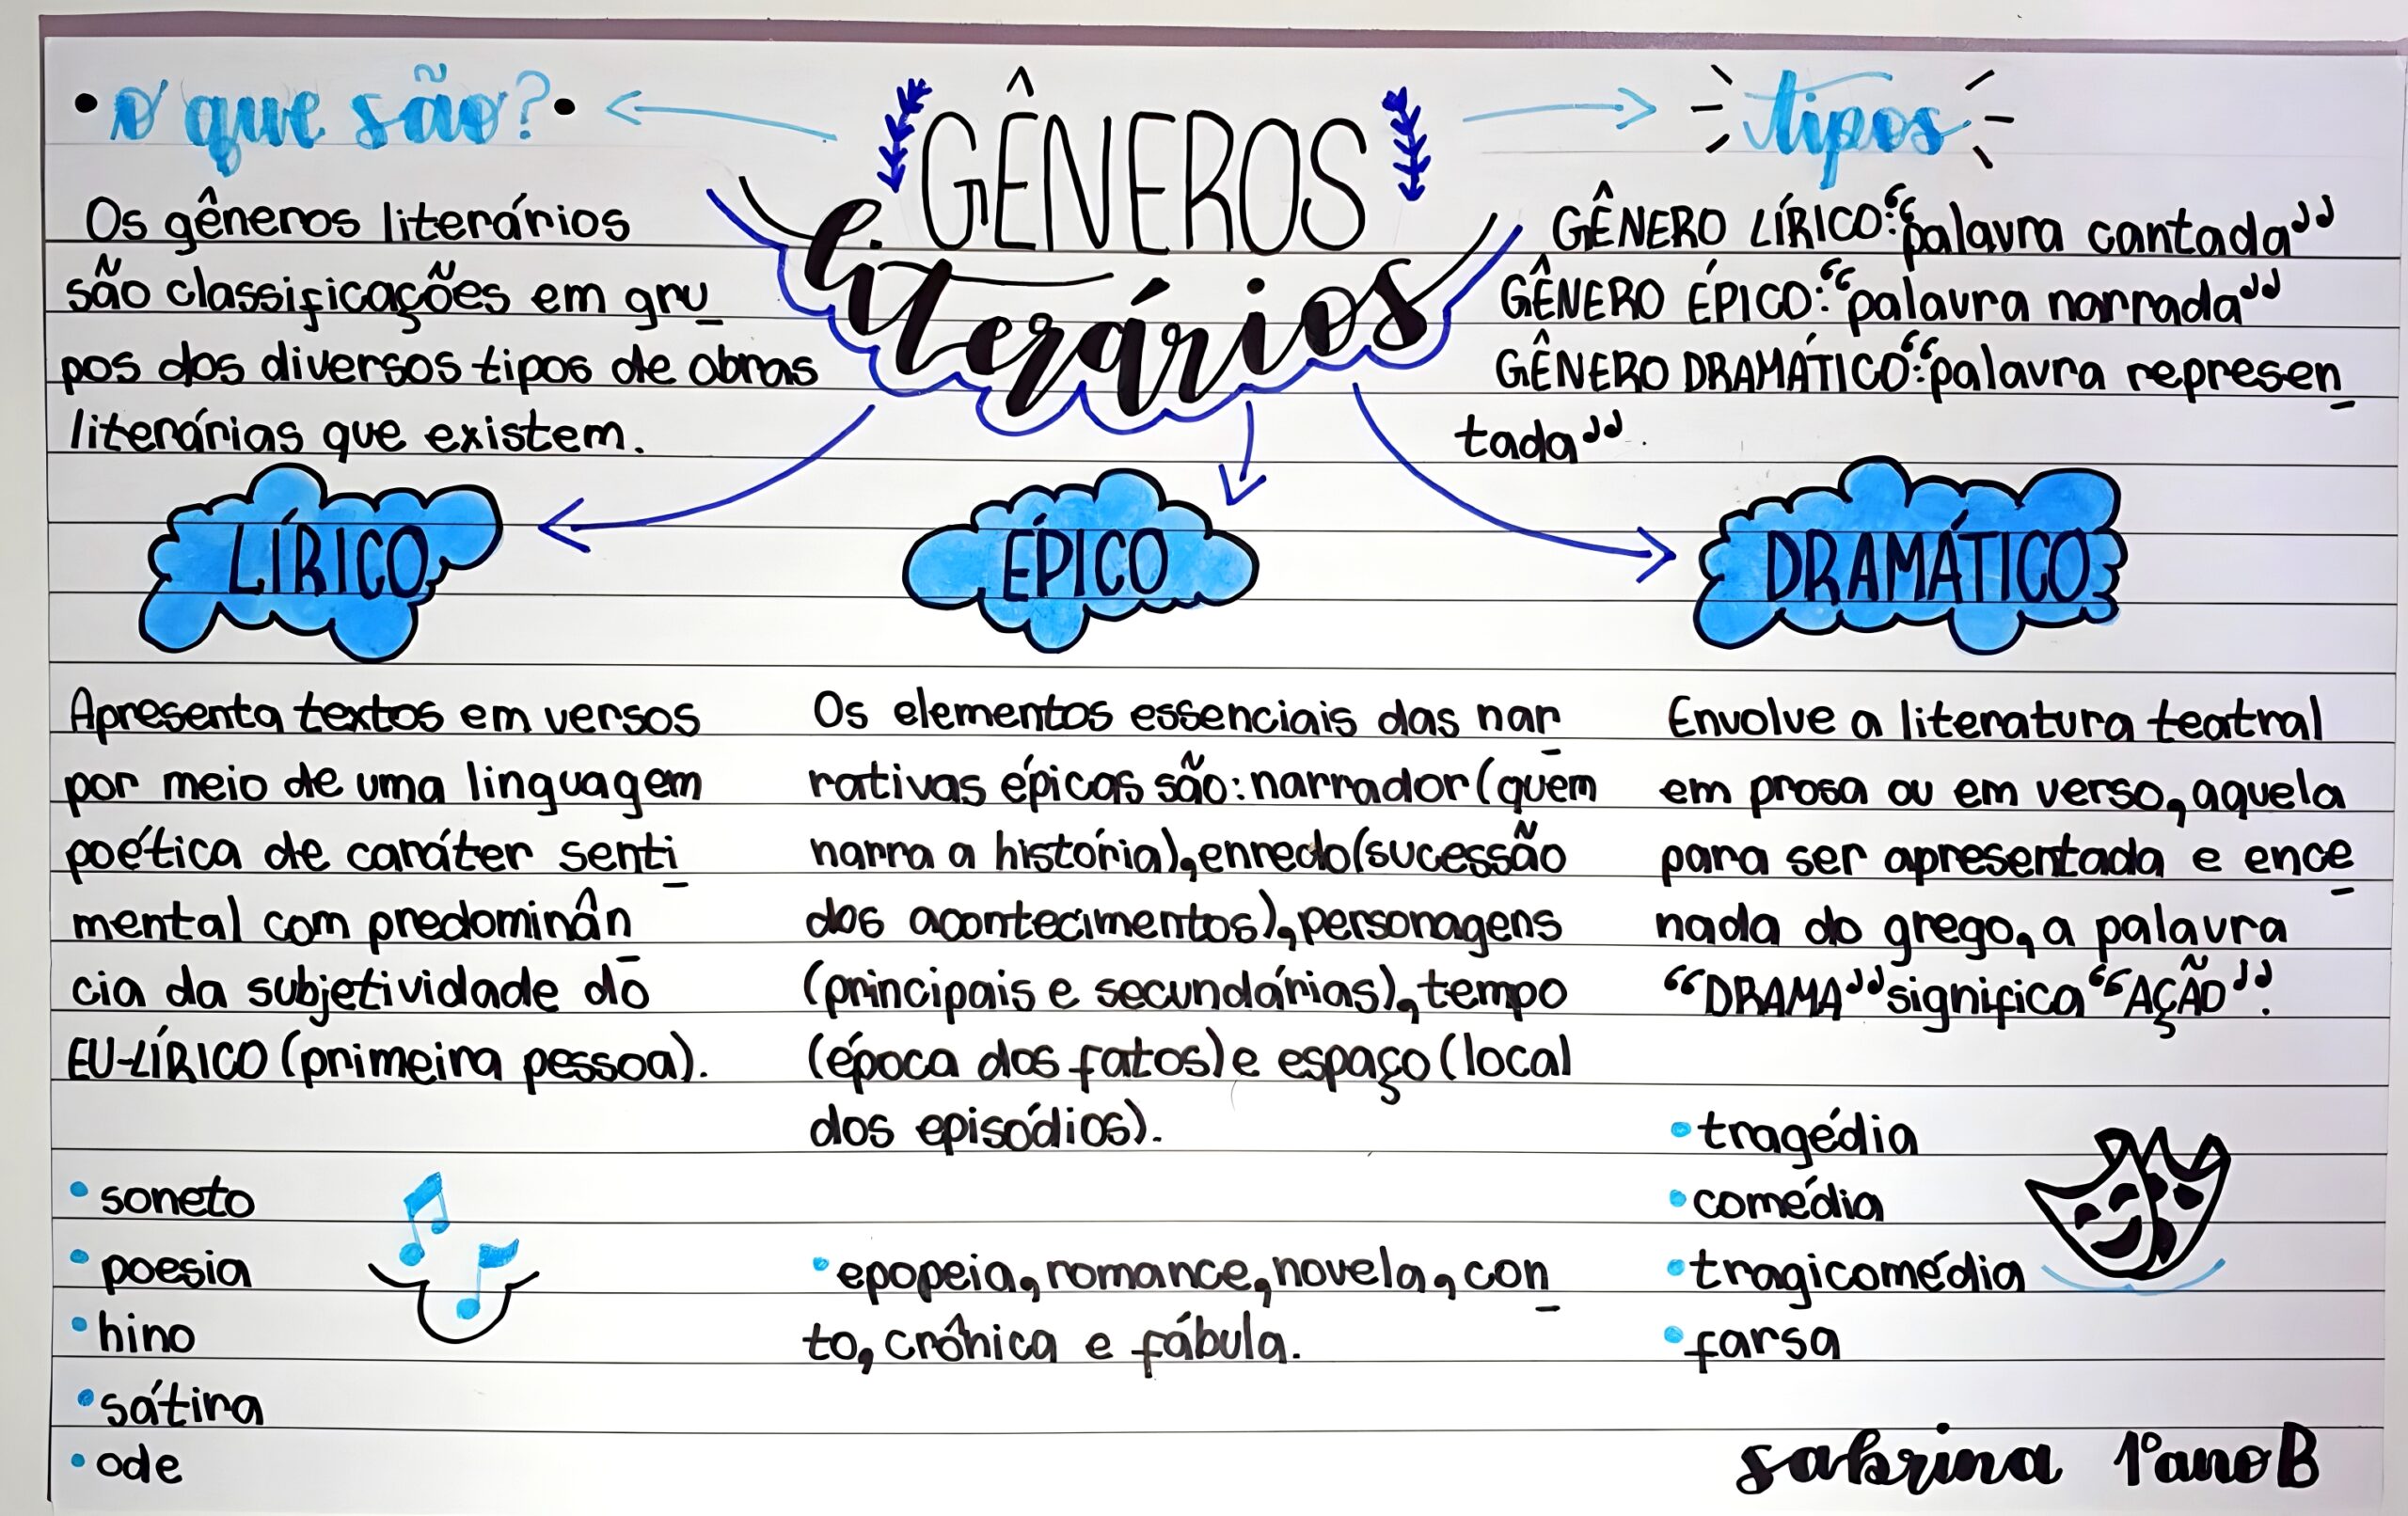 • O que são? •
Os gêneros literários
são classificações em gru
pos dos diversos tipos de obras
literárias que existem.
GÊNEROS
literários
tipos
GÊNERO LÍRICO: "palavra cantada"
GÊNERO ÉPICO: "palavra narrada"
GÊNERO DRAMÁTICO: "palavra represen
tada".
LÍRICO
Apresenta textos em versos
por meio de uma linguagem
poética de caráter senti
mental com predominân
cia da subjetividade do
EU-LÍRICO (primeira pessoa).
• soneto
• poesia
• hino
• sátira
• ode
ÉPICO
Os elementos essenciais das nar
rativas épicas são: narrador (quem
narra a história), enredo (sucessão
dos acontecimentos), personagens
(principais e secundárias), tempo
(época dos fatos) e espaço (local
dos episódios).
• epopeia, romance, novela, con
to, crônica e fábula.
DRAMÁTICO
Envolve a literatura teatral
em prosa ou em verso, aquela
para ser apresentada e ence
nada do grego, a palavra
"DRAMA" significa "AÇÃO".
• tragédia
• comédia
• tragicomédia
• farsa
sabrina 1º ano B